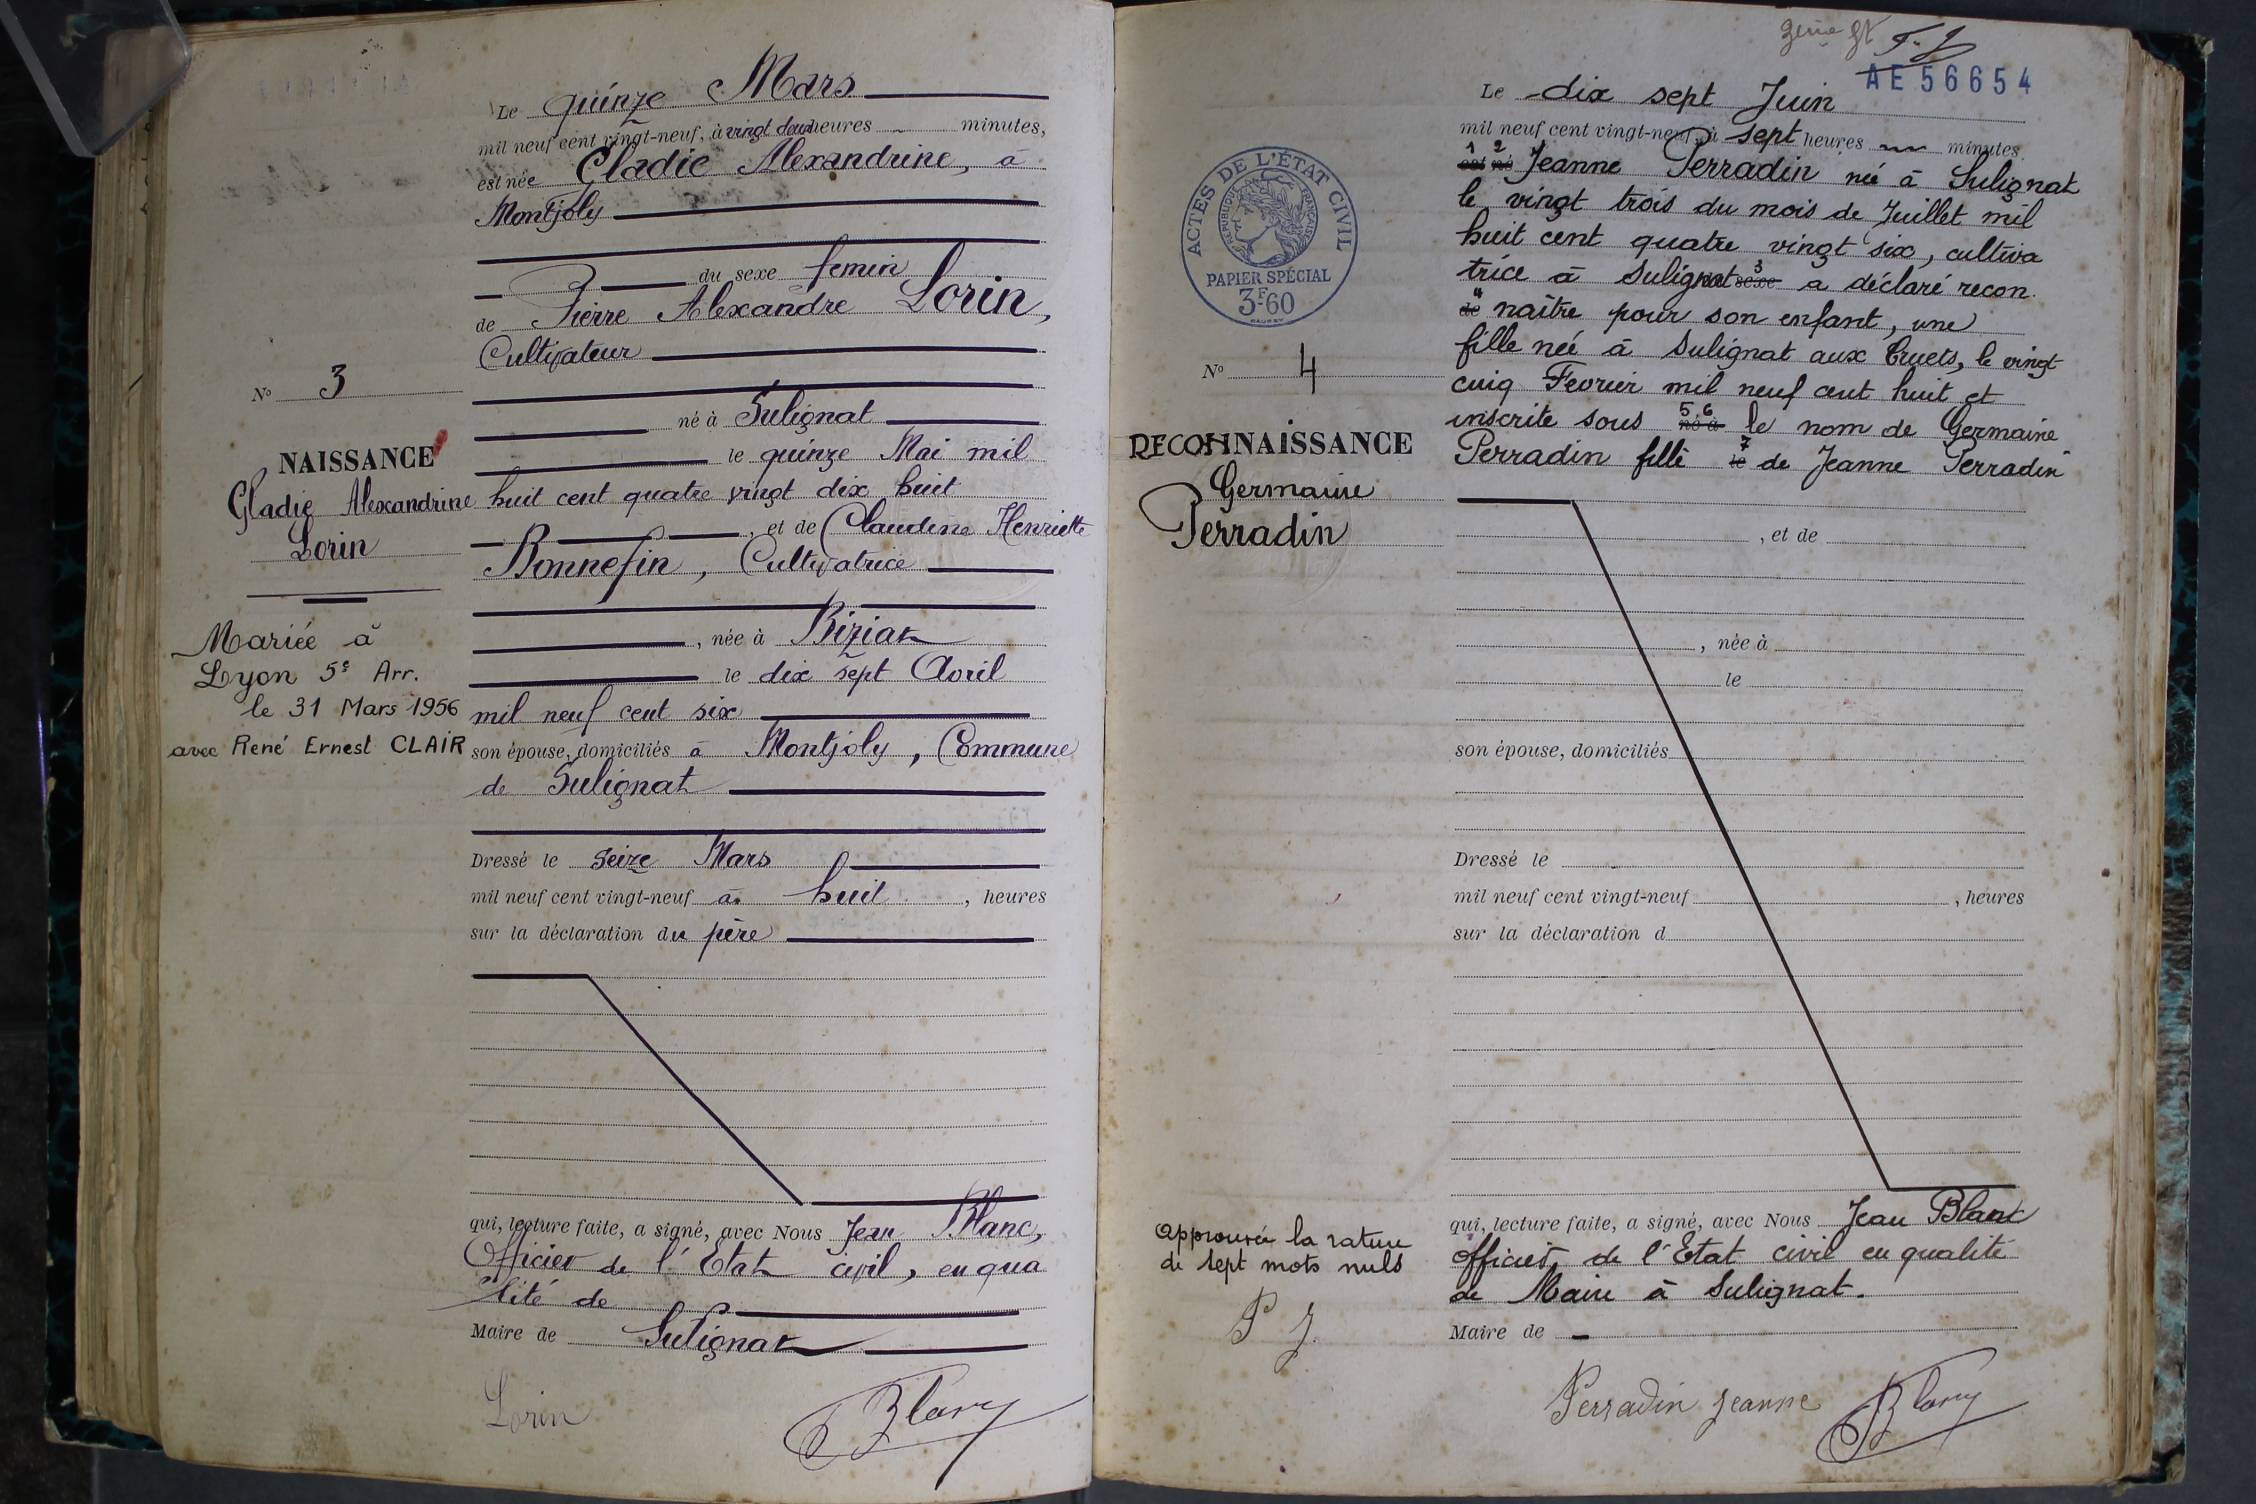 Le quinze Mars
mil neuf cent vingt-neuf, à vingt deux heures minutes,
est née Gladie Alexandrine, à
Montjoly
du sexe femin
de Pierre Alexandre Lorin,
Cultivateur
né à Sulignat
le quinze Mai mil
huit cent quatre vingt dix huit
, et de Claudine Henriette
Bonnefin, Cultivatrice
, née à Biziat
le dix sept Avril
mil neuf cent six
son épouse, domiciliés à Montjoly, Commune
de Sulignat
Dressé le seize Mars
mil neuf cent vingt-neuf à huit , heures
sur la déclaration du père
qui, lecture faite, a signé, avec Nous Jean Blanc,
Officier de l'Etat civil, en qua
lité de
Maire de Sulignat
Lorin Blanc
No 3
NAISSANCE
Gladie Alexandrine
Lorin
Mariée à
Lyon 5e Arr.
le 31 Mars 1956
avec René Ernest CLAIR
AE 56654
Le dix sept Juin
mil neuf cent vingt-neuf à sept heures minutes
1 2 est né Jeanne Perradin née à Sulignat
le vingt trois du mois de Juillet mil
huit cent quatre vingt six, cultiva
trice à Sulignat sexe 3 a déclaré recon
de 4 naître pour son enfant, une
fille née à Sulignat aux Cruets, le vingt
cinq Fevrier mil neuf cent huit et
inscrite sous 5 6 né à le nom de Germaine
Perradin fille 7 le de Jeanne Perradin
, et de
, née à
le
son épouse, domiciliés
Dressé le
mil neuf cent vingt-neuf , heures
sur la déclaration d
qui, lecture faite, a signé, avec Nous Jean Blanc
officier de l'Etat civil en qualité
de Maire à Sulignat.
Maire de
Perradin Jeanne Blanc
ACTES DE L'ÉTAT CIVIL
RÉPUBLIQUE FRANÇAISE
PAPIER SPÉCIAL
3F60
No 4
RECONNAISSANCE
Germaine
Perradin
Approuvée la rature
de sept mots nuls
P J.